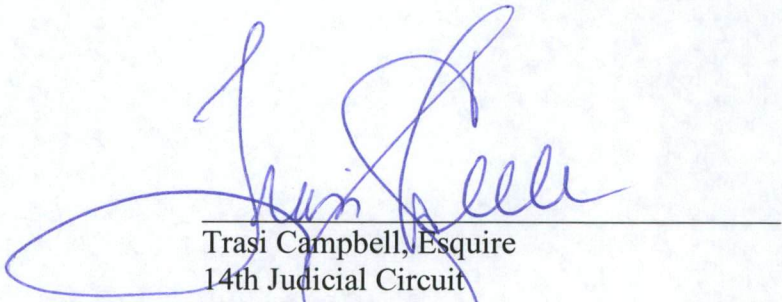 Trasi Campbell, Esquire
14th Judicial Circuit